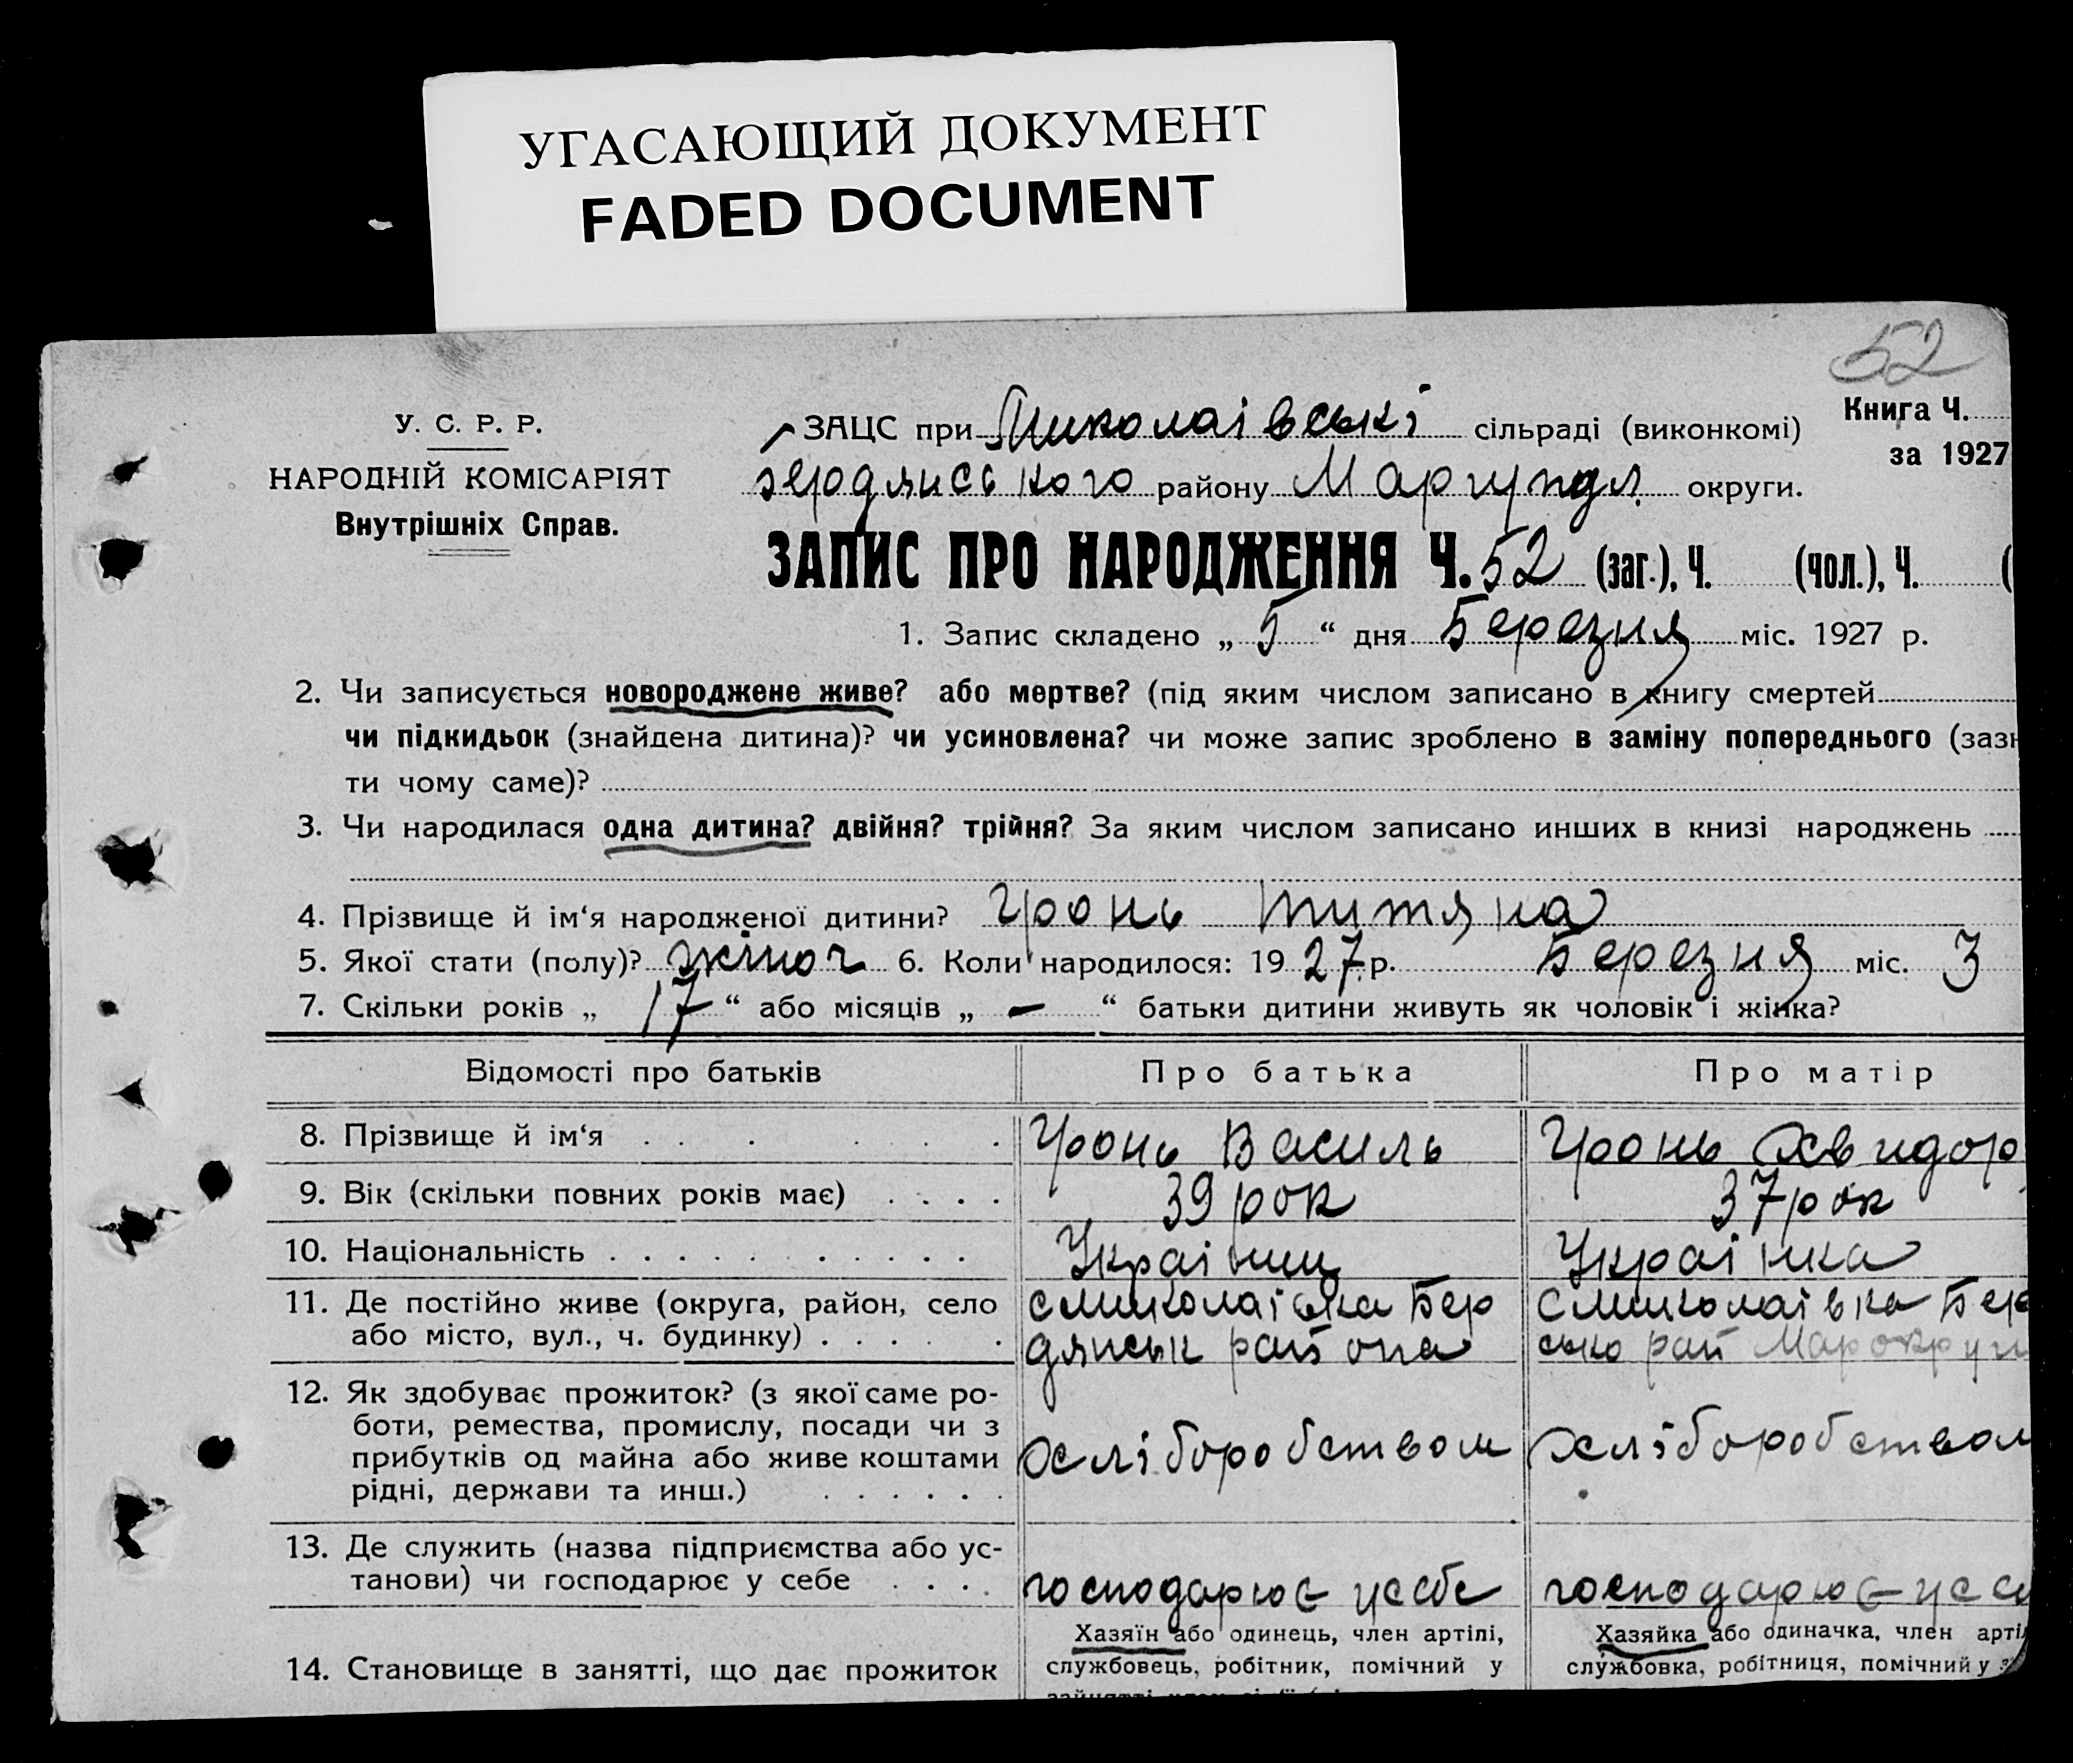 УГАСАЮЩИЙ ДОКУМЕНТ
FADED DOCUMENT
52
У. С. Р. Р.
НАРОДНІЙ КОМІСАРІЯТ
Внутрішніх Справ.
ЗАЦС при Миколаівські сільраді (виконкомі)
Книга Ч.
за 1927
бердянського району Маріупол округи.
ЗАПИС ПРО НАРОДЖЕННЯ Ч. 52 (заг.), Ч. (чол.), Ч. (
1. Запис складено „ 5 “ дня Березня міс. 1927 р.
2. Чи записується новороджене живе? або мертве? (під яким числом записано в книгу смертей
чи підкидьок (знайдена дитина)? чи усиновлена? чи може запис зроблено в заміну попереднього (зазн
ти чому саме)?
3. Чи народилася одна дитина? двійня? трійня? За яким числом записано инших в книзі народжень
4. Прізвище й ім‘я народженої дитини? Гронь Титяна
5. Якої стати (полу)? жіноч 6. Коли народилося: 1927 р. Березня міс. 3
7. Скільки років „ 17 “ або місяців „ — “ батьки дитини живуть як чоловік і жінка?
Відомості про батьків Про батька Про матір
8. Прізвище й ім‘я . . . . . . . Гронь Василь Гронь Хвидор
9. Вік (скільки повних років має) . . . . 39 рок 37 рок
10. Національність . . . . . . . . . . . Украінец Украінка
11. Де постійно живе (округа, район, село с Миколаівка Бер с Миколаівка Бер
або місто, вул., ч. будинку) . . . . . . дянськ района сько рай Марокруги
12. Як здобуває прожиток? (з якої саме ро-
боти, ремества, промислу, посади чи з
прибутків од майна або живе коштами хліборобством хліборобством
рідні, держави та инш.) . . . . . .
13. Де служить (назва підприємства або ус-
танови) чи господарює у себе . . . . господарює у себе господарює у себ
Хазяїн або одинець, член артілі, Хазяйка або одиначка, член арті
14. Становище в занятті, що дає прожиток службовець, робітник, помічний у службовка, робітниця, помічний у